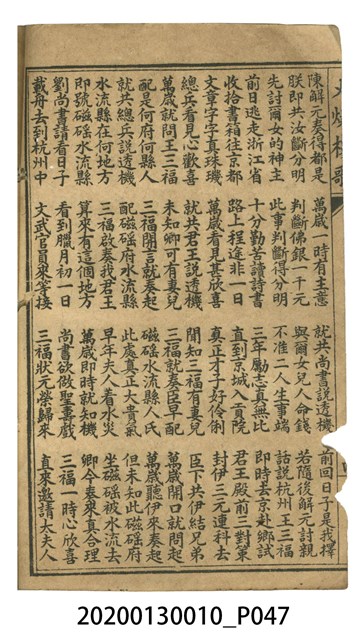 陳解元奏得都是 萬歲一時有主意 就共尚書說透機 前回日子是我擇
朕即共汝斷分明 判斷佛銀一千元 與爾女兒人命錢 若隨後解元討親
先討爾女的神主 此事判斷得分明 不准二人生事端 話說杭州王三福
前日逃走浙江省 十分勤苦讀詩書 三年勵志真無比 即時去京赴鄉試
收拾書箱往京都 路上程途非一日 直到京城入貢院 君王殿前三對策
文章字字真珠璣 萬歲看見甚歡喜 真正才子好伶俐 封伊三元連科去
總兵看見心歡喜 就共君王說透機 聞知三福有妻兒 臣下共伊結兄弟
萬歲就問王三福 未知卿可有妻兒 三福就奏臣早配 萬歲開口就問起
配是何府何縣人 三福開言就奏起 磁磘水流縣人氏 萬歲聽伊來奏起
就共總兵說透機 配磁磘府水流縣 此處真正大貴氣 但未知此磁磘府
水流縣在何地方 三福啟奏我君王 早年夫人着水災 坐磁磘被水流去
即號磁磘水流縣 算來有這個地方 萬歲即時就知機 卿今奏來真合理
劉尚書請看日子 看到臘月初一日 尚書欲做聖事戲 三福一時心歡喜
載舟去到杭州中 文武官員來等接 三福狀元榮歸來 直來邀請大夫人
20200130010_P047